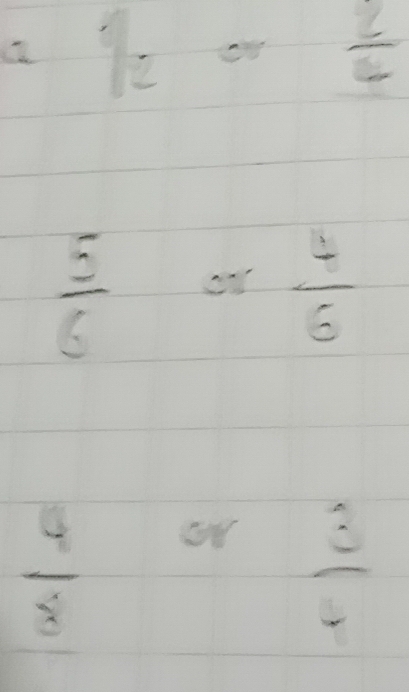 a 1/2 or 2/4
5/6 or 4/6
4/8 or 3/4